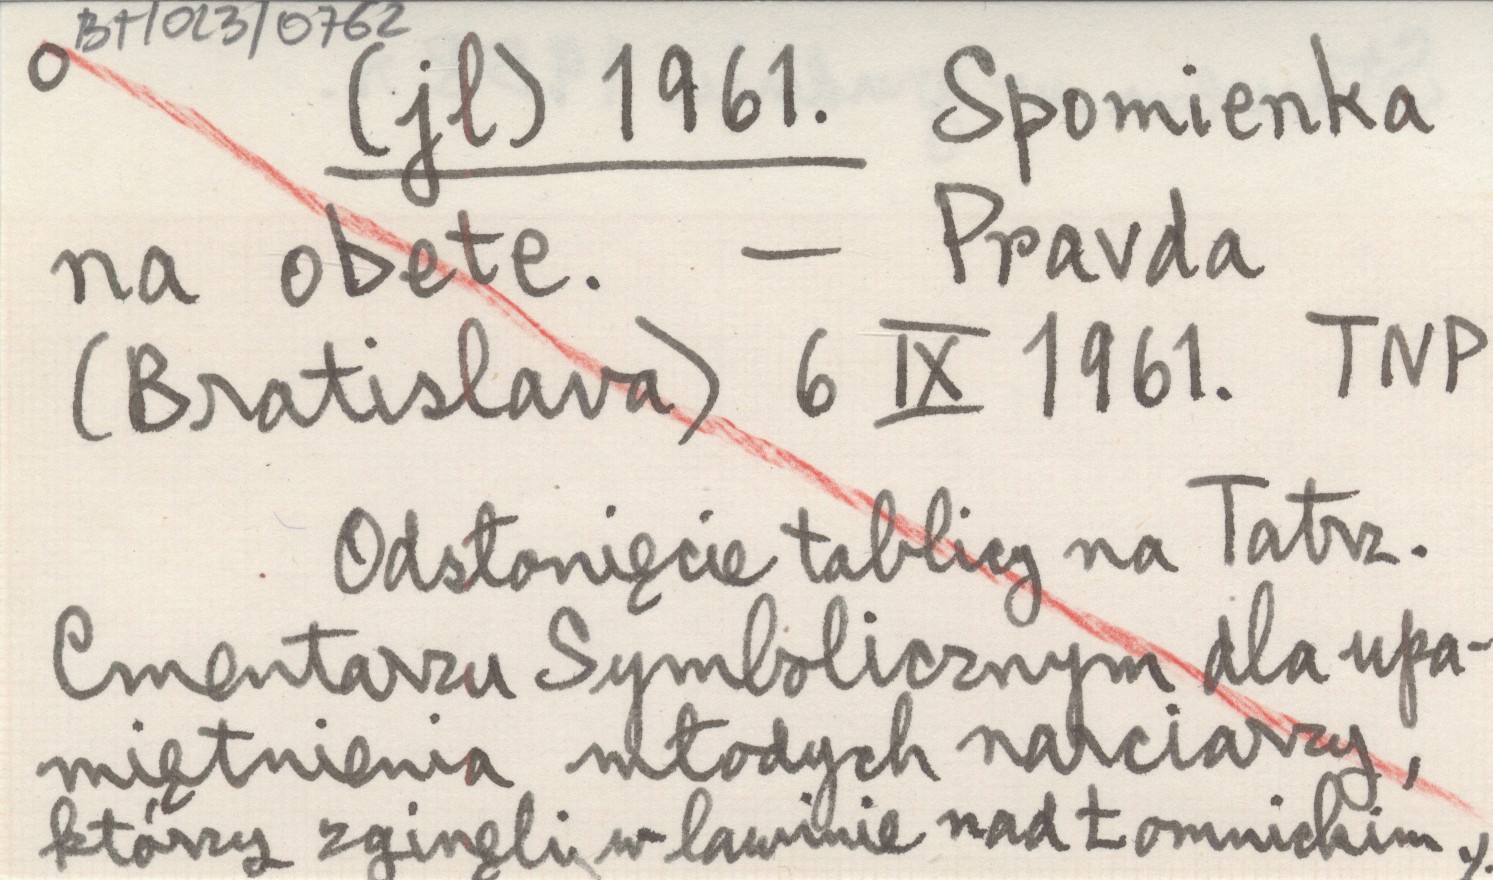 BH/023/0762
(jl) 1961. Spomienka
na obete. — Pravda
(Bratislava) 6 IX 1961. TNP
Odsłonięcie tablicy na Tatrz.
Cmentarzu Symbolicznym dla upa-
miętnienia młodych narciarzy,
którzy zginęli w lawinie nad Łomnickim